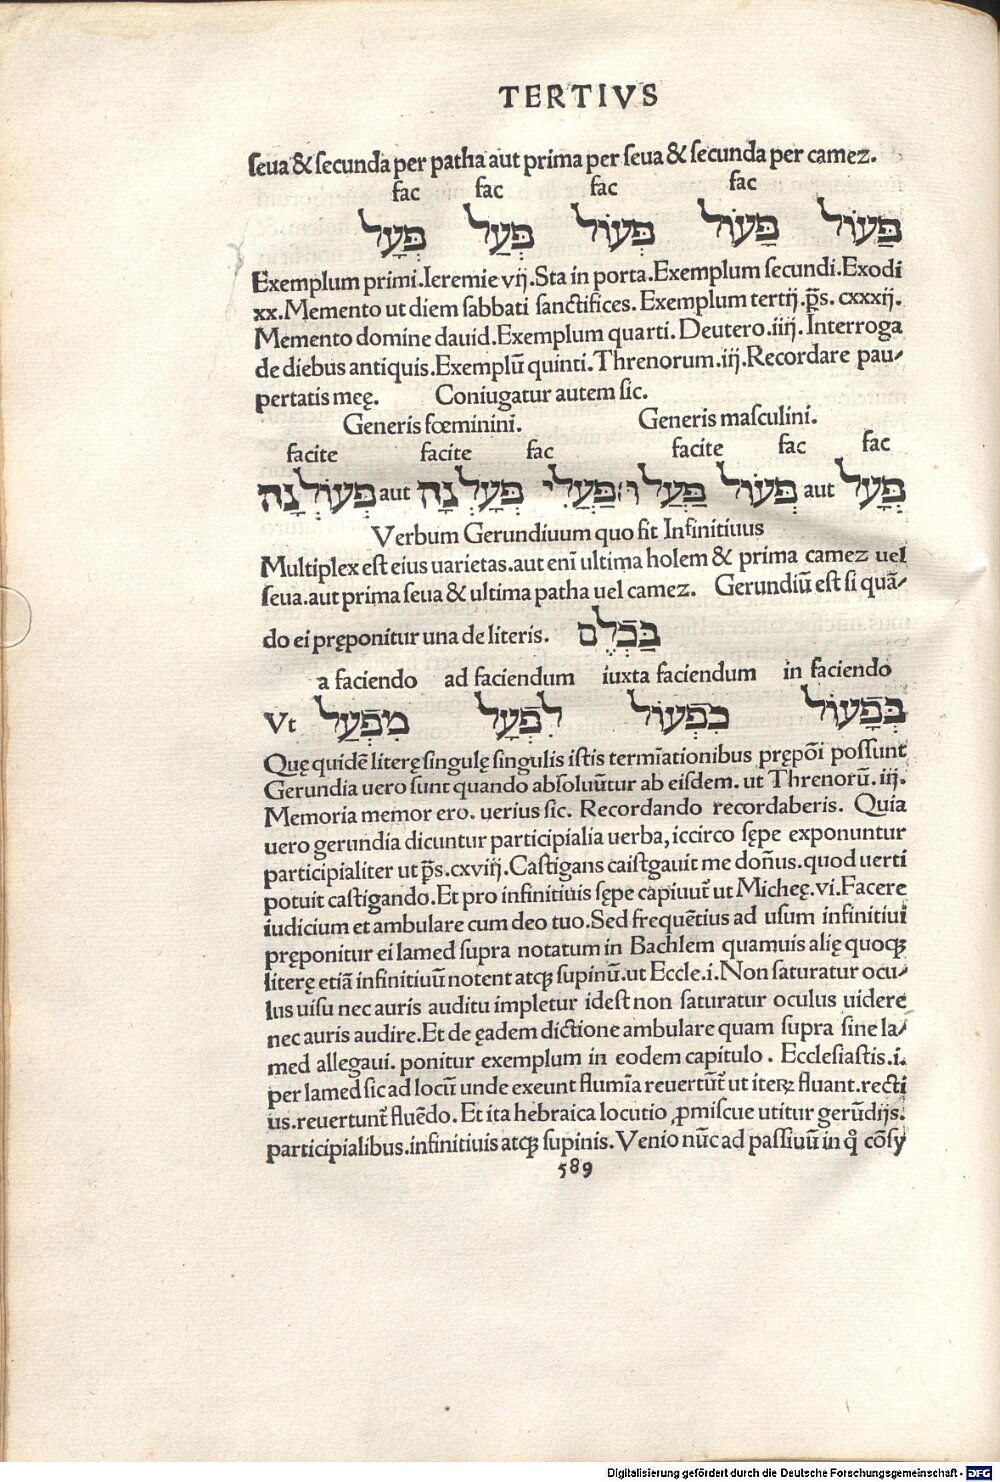 TERTIVS
ſeua & ſecunda per patha aut prima per ſeua & ſecunda per camez.
fac fac fac fac
פַּעוֹל פָּעוֹל פְּעוֹל פְּעַל פְּעָל
Exemplum primi.Ieremie vij.Sta in porta.Exemplum ſecundi.Exodi
xx.Memento ut diem ſabbati ſanctifices.Exemplum tertij.p̄s. cxxxij.
Memento domine dauid.Exemplum quarti. Deutero.iiij. Interroga
de diebus antiquis.Exemplū quinti.Threnorum.iij.Recordare pau⸗
pertatis meę. Coniugatur autem ſic.
Generis fœminini. Generis maſculini.
facite facite fac facite fac fac
פְּעָל aut פְּעוֹל פַּעֲלוּ׃ פַּעֲלִי פְּעָלְנָה aut פְּעוֹלְנָה
Verbum Gerundiuum quo fit Infinitiuus
Multiplex eſt eius uarietas.aut enī ultima holem & prima camez uel
ſeua.aut prima ſeua & ultima patha uel camez. Gerundiū eſt ſi quā⸗
do ei pręponitur una de literis. בַּכְלֶם
a faciendo ad faciendum iuxta faciendum in faciendo
Vt בְּפָעוֹל כִּפְעוֹל לִפְעָל מִפְּעַל
Quę quidē literę ſingulę ſingulis iſtis termīationibus prępōi poſſunt
Gerundia uero ſunt quando abſoluūtur ab eiſdem. ut Threnorū. iij.
Memoria memor ero. uerius ſic. Recordando recordaberis. Quia
uero gerundia dicuntur participialia uerba, iccirco ſępe exponuntur
participialiter ut p̄s.cxviij.Caſtigans caiſtgauit me don̄us.quod uerti
potuit caſtigando.Et pro infinitiuis ſępe capiuut̄ ut Micheę.vi.Facere
iudicium et ambulare cum deo tuo.Sed frequētius ad uſum infinitiui
pręponitur ei lamed ſupra notatum in Bachlem quamuis alię quoqꝫ
literę etiā infinitiuū notent atqꝫ ſupinū.ut Eccle.i.Non ſaturatur ocu⸗
lus uiſu nec auris auditu impletur ideſt non ſaturatur oculus uidere
nec auris audire.Et de ęadem dictione ambulare quam ſupra ſine la⸗
med allegaui. ponitur exemplum in eodem capitulo . Eccleſiaſtis.i.
per lamed ſic ad locū unde exeunt flumīa reuertūt̄ ut iteꝝ fluant.recti
us.reuertunt̄ fluēdo. Et ita hebraica locutio ꝓmiſcue utitur gerūdijs.
participialibus.infinitiuis atqꝫ ſupinis. Venio nūc ad paſſiuū in q̊ cōſy
589
Digitalisierung gefördert durch die Deutsche Forschungsgemeinschaft - DFG